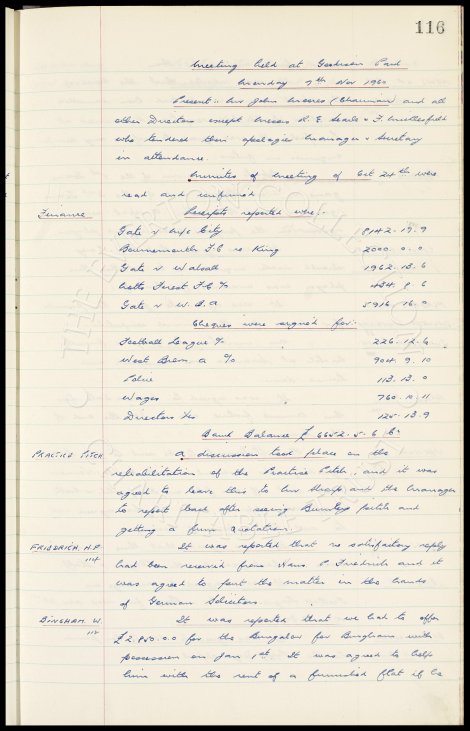 116
Meeting held at Goodison Park
Monday 7th Nov 1960
Present:- Mr John Moores (Chairman) and all
other Directors except Messrs R. E. Searle & F. Micklesfield
who tendered their apologies Manager & Secretary
in attendance.
Minutes of Meeting of Oct 24th were
read and confirmed
Finance Receipts reported were:-
Gate v M/c City 8142. 19. 9
Bournemouth F.C. re King 2000. 0. 0
Gate v Walsall 1962. 13. 6
Notts Forest F.C. % 484. 8. 6
Gate v W.B.A 5916. 16. 0
Cheques were signed for:-
Football League % 226. 12. 6
West Brom. A % 904. 9. 10
Police 113. 13. 0
Wages 760. 10. 11
Directors Exs 125. 13. 9
Bank Balance £ 6652. 5. 6
PRACTICE PITCH A discussion took place on the
rehabilitation of the Practice Pitch, and it was
agreed to leave this to Mr Sharp and the Manager
to report back after seeing Burnley pitch and
getting a firm quotation.
FRIEDRICH. H.P. It was reported that no satisfactory reply
114 had been received from Hans P Friedrich and it
was agreed to put the matter in the hands
of German Solicitors.
BINGHAM. W. It was reported that we had to offer
112 £2850.0.0 for the Bungalow for Bingham with
possession on Jan 1st. It was agreed to help
him with the rent of a furnished flat if he